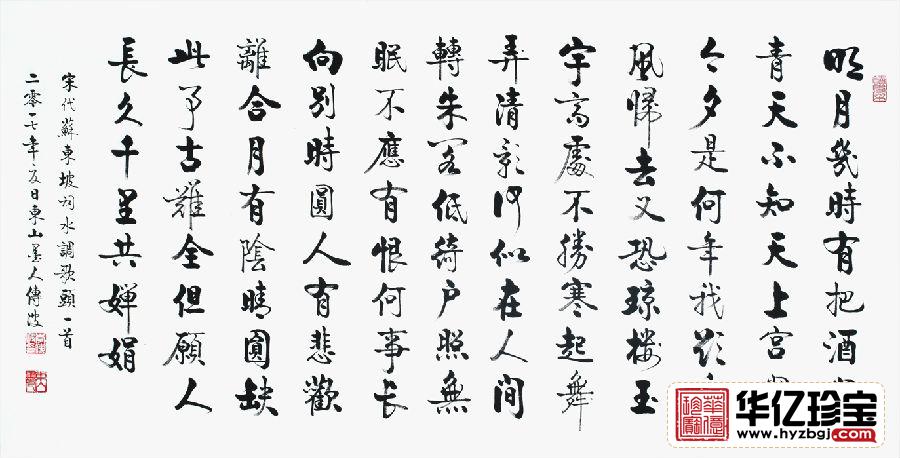 明月幾時有把酒
青天不知天上宮
今夕是何年我欲
風歸去又恐瓊樓玉
宇高處不勝寒起舞
弄清影何似在人間
轉朱閣低綺户照無
眠不應有恨何事長
向别時圓人有悲歡
離合月有陰晴圓缺
此事古難全但願人
長久千里共嬋娟
宋代蘇東坡詞水調歌頭一首
二零一七年夏日東山墨人傳波
華億珍寶
华亿珍宝
www.hyzbgj.com